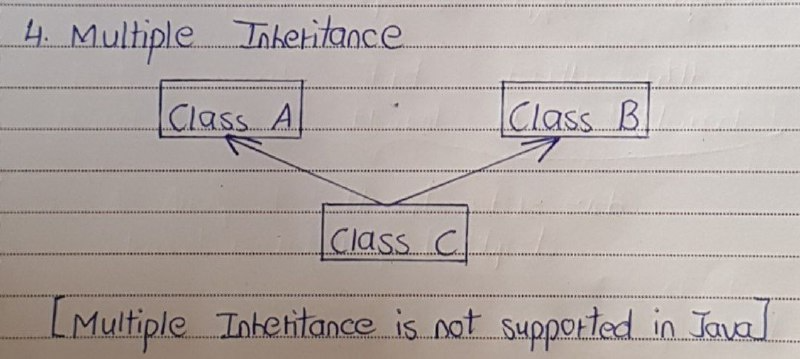 4. Multiple Inheritance
Class A Class B
Class C
[Multiple Inheritance is not supported in Java]